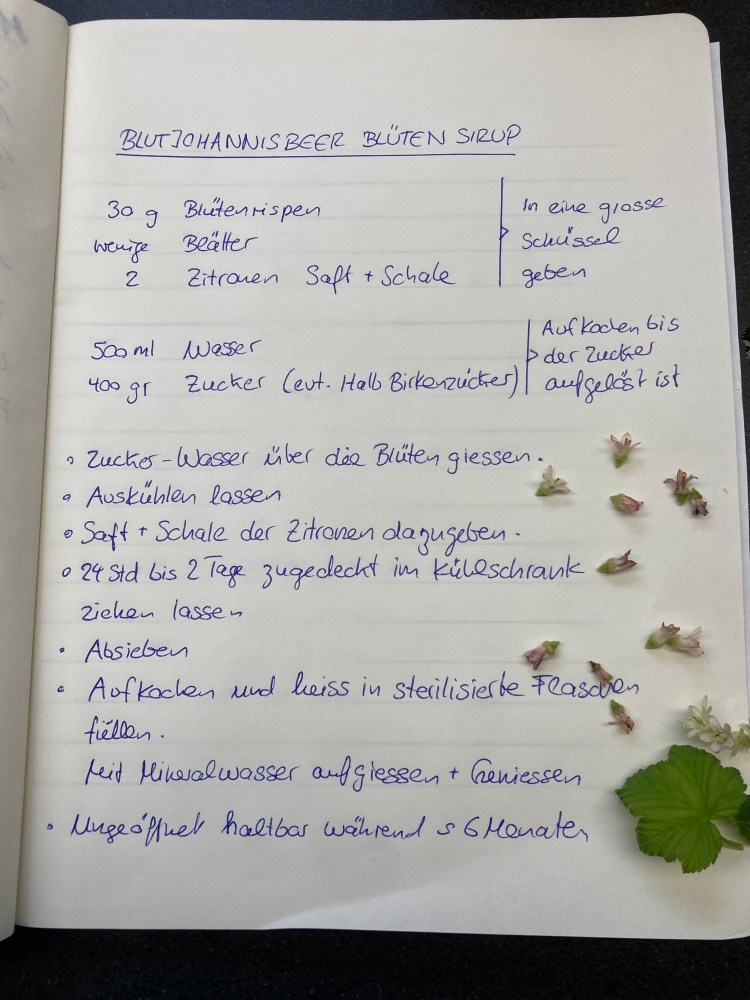 BLUTJOHANNISBEER BLÜTEN SIRUP
30 g Blütenrispen
wenige Blätter
2 Zitronen Saft + Schale
In eine grosse
Schüssel
geben
500 ml Wasser
400 gr Zucker (evt. Halb Birkenzucker)
Aufkochen bis
der Zucker
aufgelöst ist
• Zucker-Wasser über die Blüten giessen.
• Auskühlen lassen
• Saft + Schale der Zitronen dazugeben.
• 24 Std bis 2 Tage zugedeckt im Kühlschrank
ziehen lassen
• Absieben
• Aufkochen und heiss in sterilisierte Flaschen
füllen.
Mit Mineralwasser aufgiessen + Geniessen
• Ungeöffnet haltbar während 6 Monaten